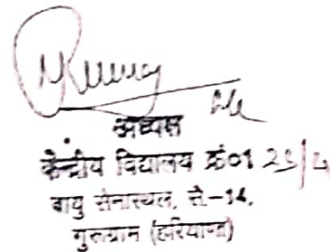 अध्यक्ष
केन्द्रीय विद्यालय क्रं०1 25/4
वायु सेनास्थल, से-14,
गुरुग्राम (हरियाणा)